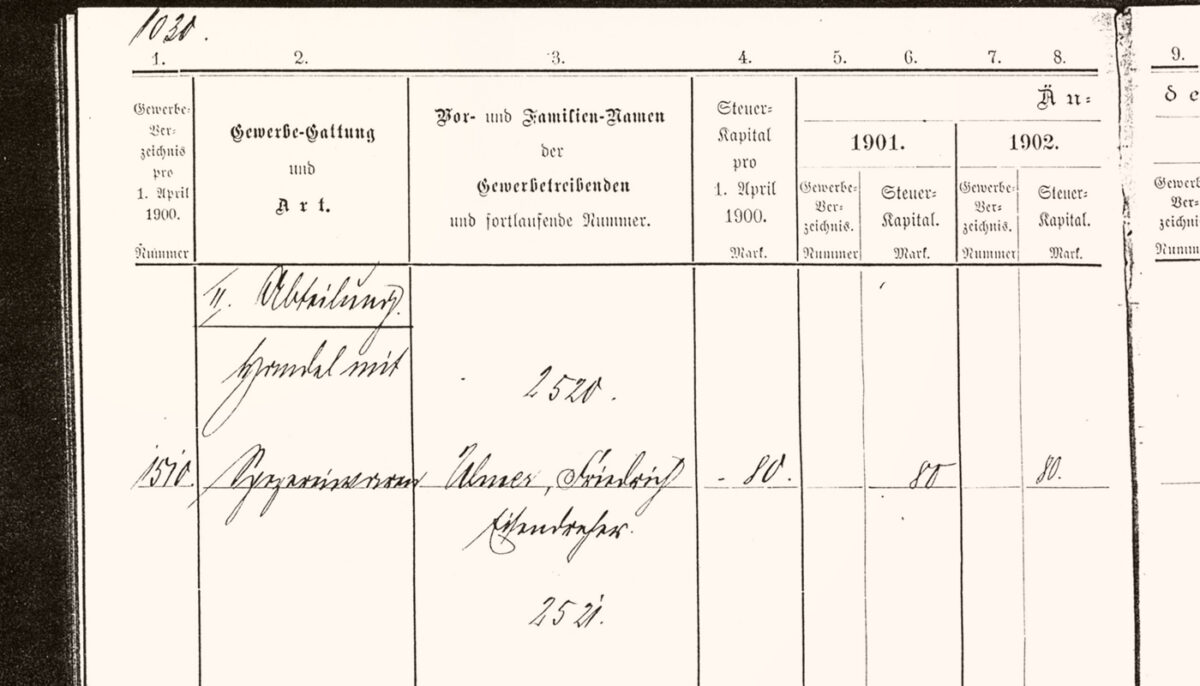 1030.
1. 2. 3. 4. 5. 6. 7. 8. 9.
Gewerbe-
Ver-
zeichnis
pro
1. April
1900.
Nummer
Gewerbe-Gattung
und
Art.
Vor- und Familien-Namen
der
Gewerbetreibenden
und fortlaufende Nummer.
Steuer-
Kapital
pro
1. April
1900.
Mark.
Än-
de
1901.
1902.
Gewerbe-
Ver-
zeichnis.
Nummer
Steuer-
Kapital.
Mark.
Gewerbe-
Ver-
zeichnis.
Nummer
Steuer-
Kapital.
Mark.
Gewerb
Ver-
zeichni
Numm
II. Abteilung.
Handel mit
2520.
1510. Spezereiwaren Ulmer, Friedrich 80. 80 80.
Eisendreher.
2521.